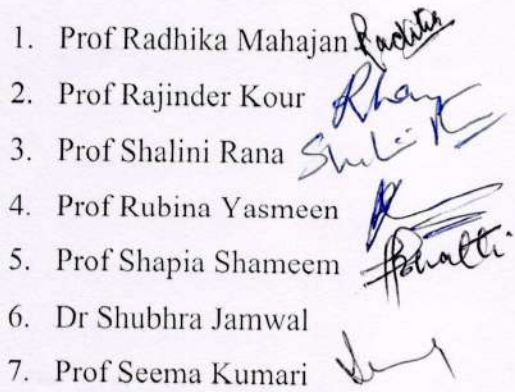 1. Prof Radhika Mahajan
2. Prof Rajinder Kour
3. Prof Shalini Rana
4. Prof Rubina Yasmeen
5. Prof Shapia Shameem
6. Dr Shubhra Jamwal
7. Prof Seema Kumari